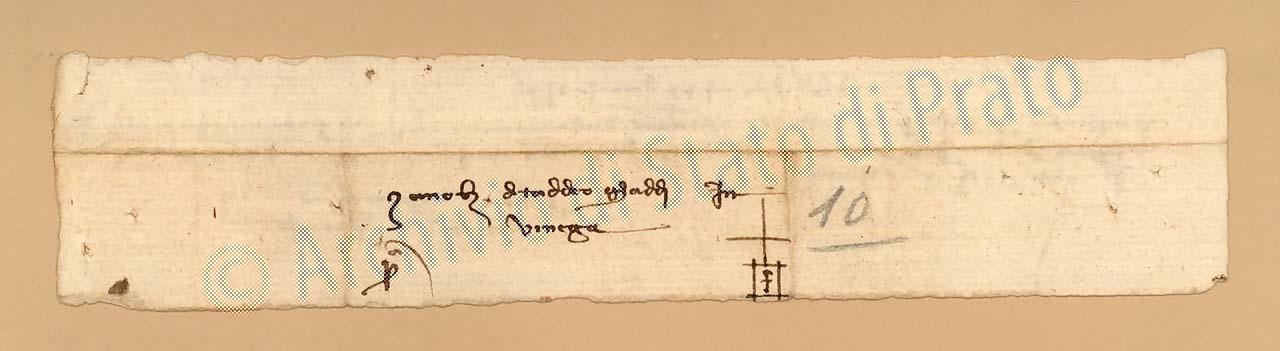 Zanobi di taddeo ghaddi In
vinegia
10
© Archivio di Stato di Prato